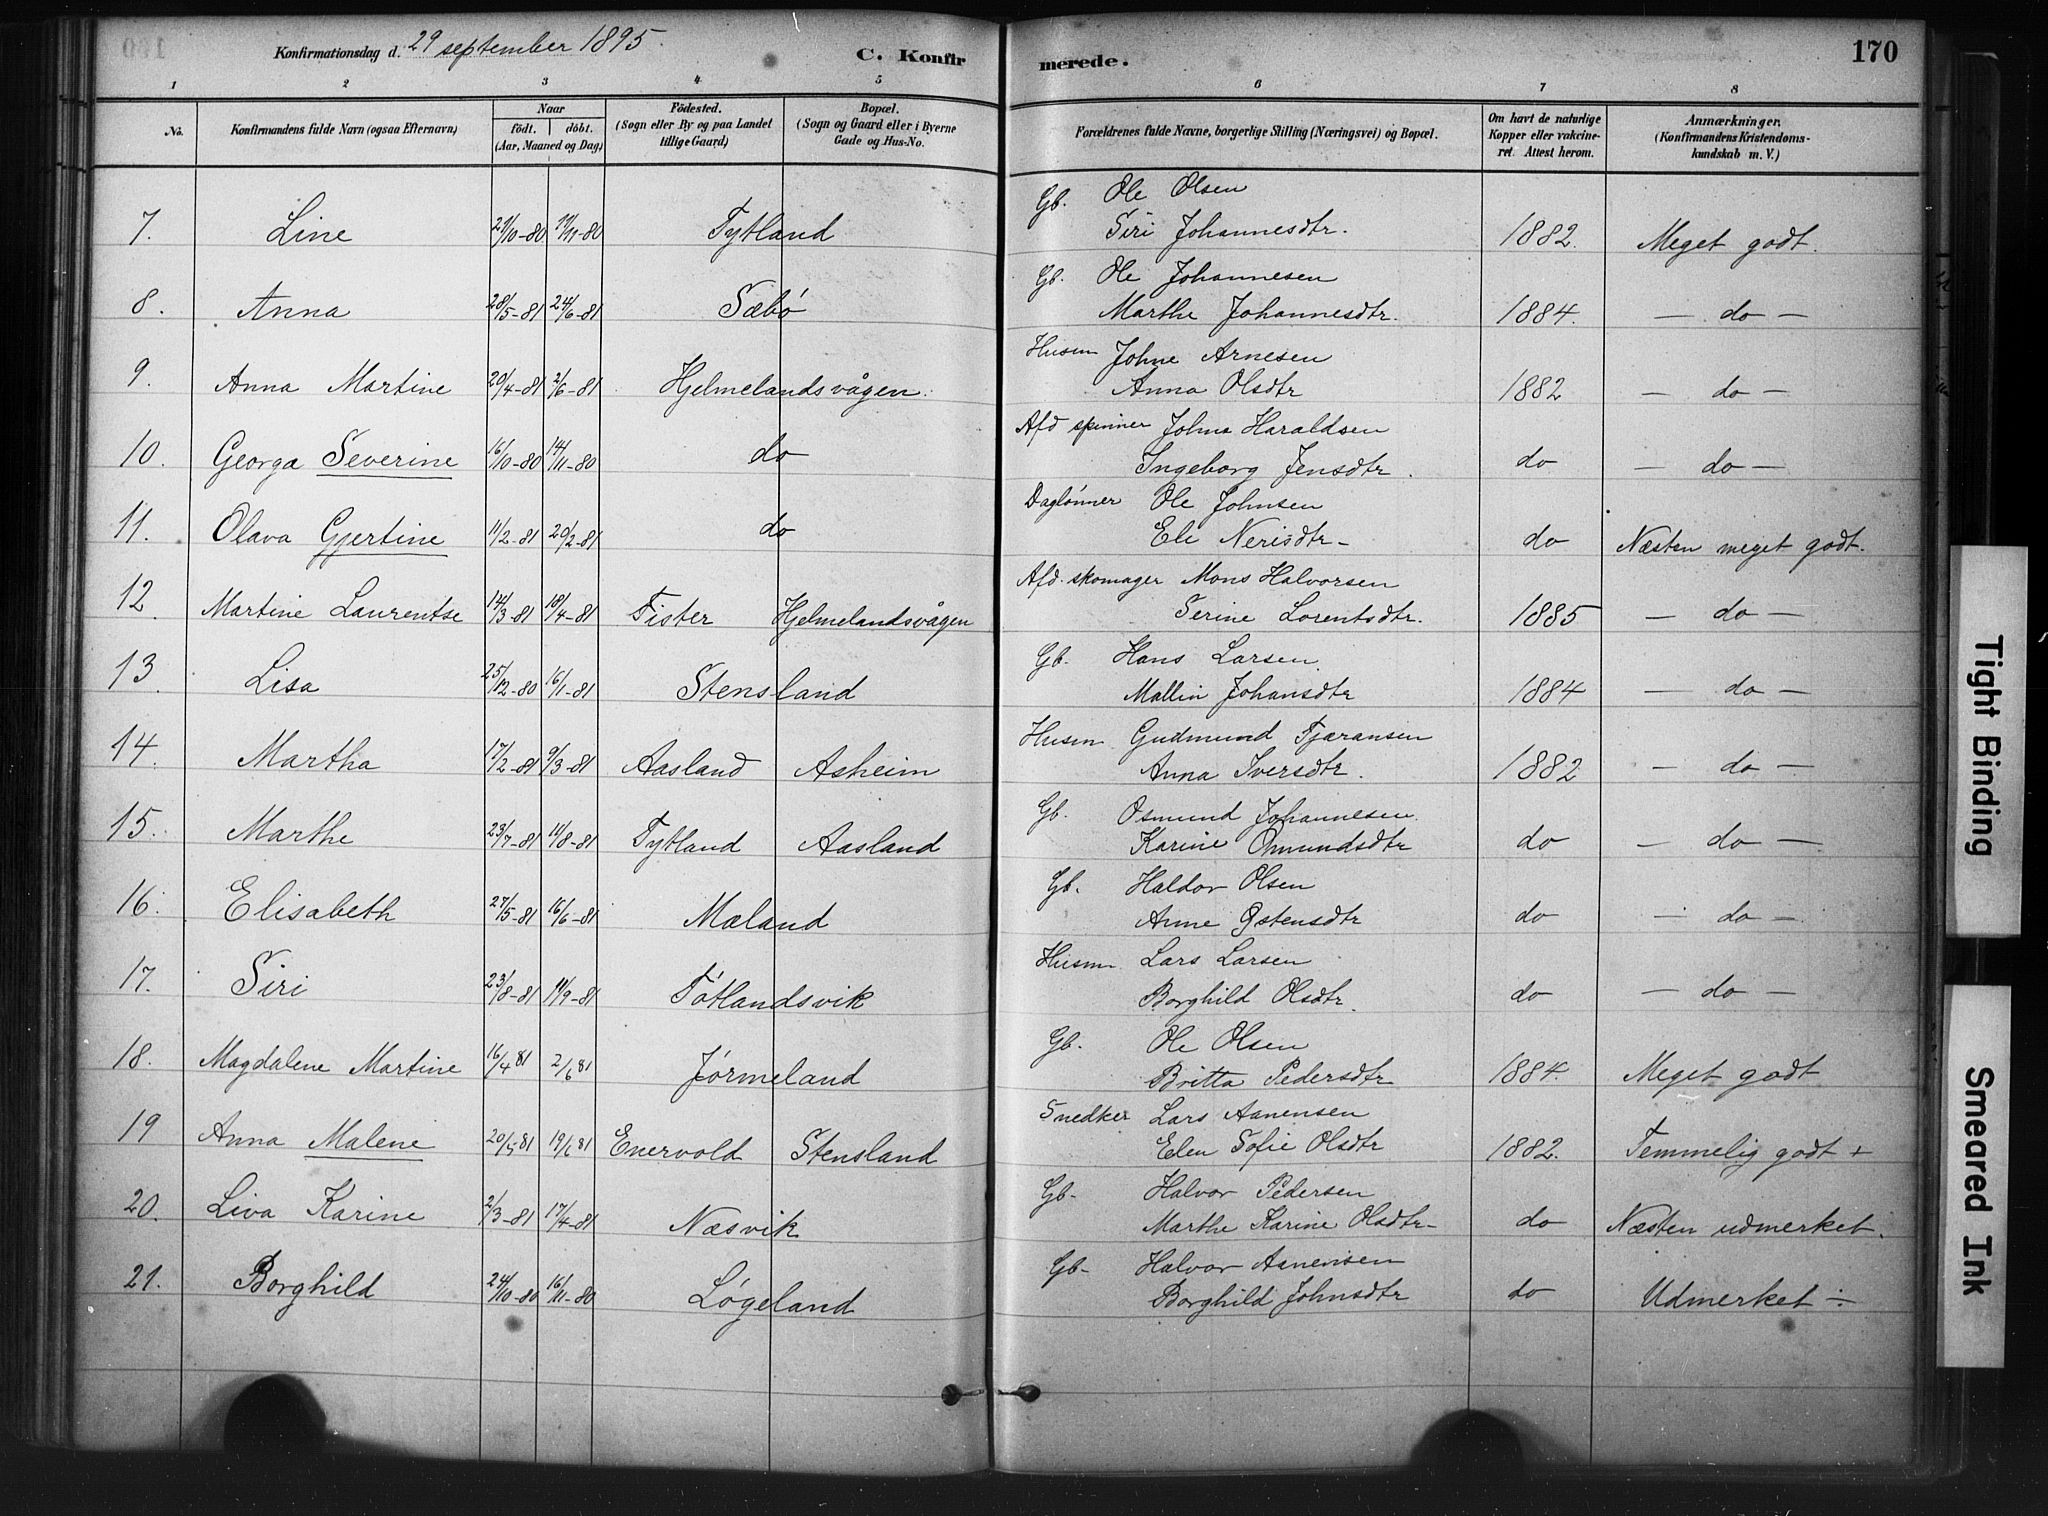 Konfirmationsdag d. 29 september 1895.
C. Konfirmerede.
170
1 2 3 4 5 6 7 8
No.
Konfirmandens fulde Navn (ogsaa Efternavn)
Naar
födt. döbt.
(Aar, Maaned og Dag)
Födested.
(Sogn eller By og paa Landet
tillige Gaard)
Bopæl.
(Sogn og Gaard eller i Byerne
Gade og Hus-No.
Forældrenes fulde Navne, borgerlige Stilling (Næringsvei) og Bopæl.
Om havt de naturlige
Kopper eller vakcine-
ret. Attest herom.
Anmærkninger.
(Konfirmandens Kristendoms-
kundskab m. V.)
Gb. Ole Olsen
7. Line 21/10-80 19/11-80 Tytland Siri Johannesdtr. 1882. Meget godt.
Gb. Ole Johannesen
8. Anna 28/5-81 24/6-81 Sæbø Marthe Johannesdtr. 1884. — do —
Husm Johne Arnesen
9. Anna Martine 20/4-81 2/6-81 Hjelmelandsvågen. Anna Olsdtr 1882 — do —
Afd spinner Johne Haraldsen
10. Georga Severine 16/10-80 14/11-80 do Ingeborg Jensdtr. do — do —
Daglønner Ole Johnsen
11. Olava Gjertine 11/2-81 20/2-81 do Eli Nerisdtr- do Næsten meget godt.
Afd. skomager Mons Halvorsen
12 Martine Laurentse 14/3-81 18/4-81 Fister Hjelmelandsvågen Serine Lorentsdtr. 1885 — do —
Gb. Hans Larsen
13. Lisa 25/12-80 16/1-81 Stensland Mallin Johansdtr 1884 — do —
Husm Gudmund Fjæransen
14. Martha 17/2-81 9/3-81 Aasland Asheim Anna Iversdtr. 1882 — do —
Gb. Osmund Johannesen
15. Marthe 23/7-81 11/8-81 Tytland Aasland Karine Omundsdtr do — do —
Gb. Haldor Olsen
16. Elisabeth 27/5-81 16/6-81 Mæland Anne Østensdtr do — do —
Husm Lars Larsen
17. Siri 23/8-81 11/9-81 Tøtlandsvik Borghild Olsdtr. do — do —
Gb. Ole Olsen
18. Magdalene Martine 16/4 81 2/6 81 Jørmeland Britta Pedersdtr 1884. Meget godt
Snedker Lars Aanensen
19 Anna Malene 20/5 81 19/6 81 Enervold Stensland Elen Sofie Olsdtr 1882. Temmelig godt +
Gb. Halvor Pedersen
20. Liva Karine 2/3-81 17/4-81 Næsvik Marthe Karine Olsdtr- do Næsten udmerket.
Gb- Halvor Aanensen
21. Borghild 24/10-80 16/11-80 Løgeland Borghild Johnsdtr do Udmerket ÷
Tight Binding
Smeared Ink